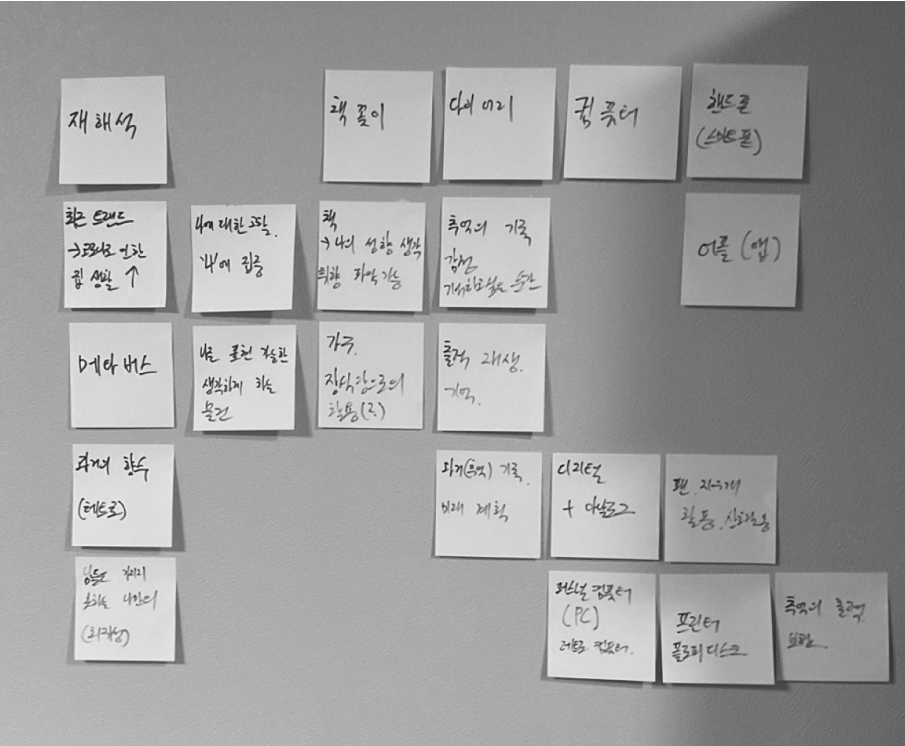 재해석
책 꽂이
다이어리
컴퓨터
핸드폰
(스마트폰)
최근 트랜드
→코로나로 인한
집 생활 ↑
나에 대한
'나'에 집중
책
→ 나의 성향 생각
취향 파악 가능
추억의 기록
감정
순간
어플 (앱)
메타버스
나를 표현 가능한
생각하게 하는
물건
가구.
장식장으로의
활용(?)
흔적 재생.
기억.
과거의 향수
(레트로)
과거(추억) 기록.
미래 계획
디지털
+ 아날로그
펜. 지우개
활동.
나만의
(희귀성)
퍼스널 컴퓨터
(PC)
레트로 컴퓨터.
프린터
플로피디스크
추억의 출력.
보관.